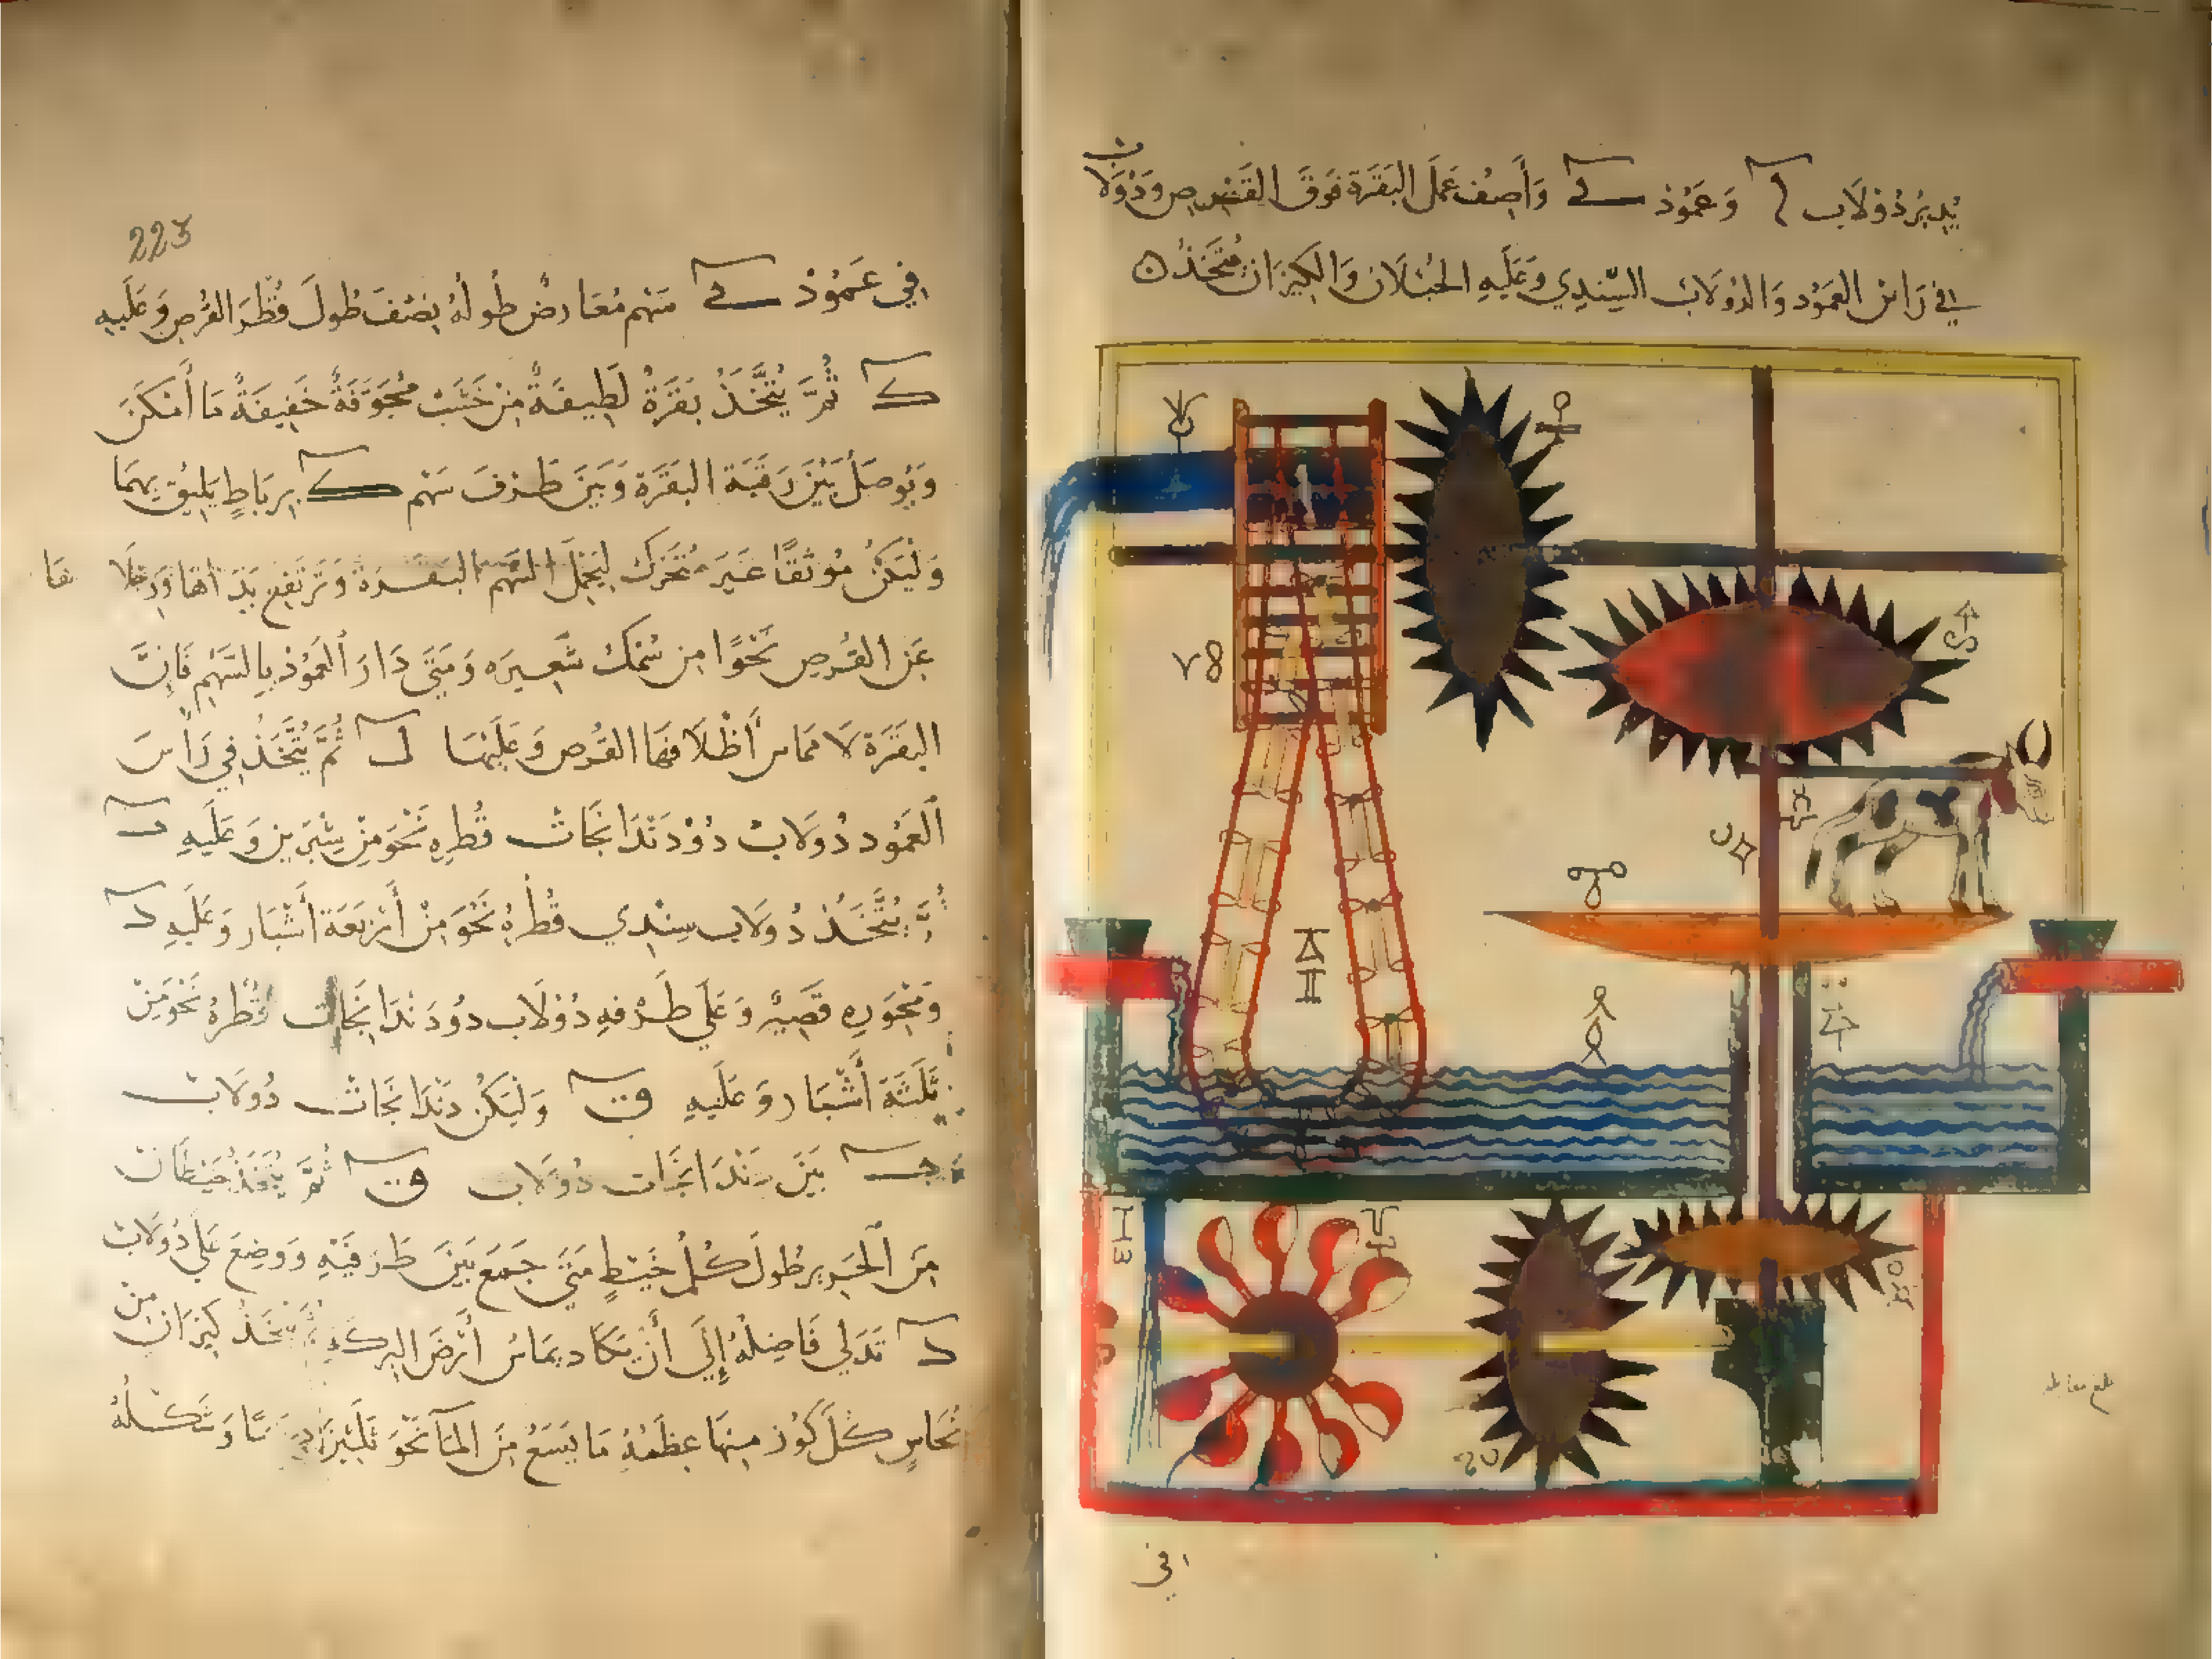 يُدِيرُ دُولَاب وَعَمُود وَأَصِفُ عَمَلَ البَقَرَة فَوقَ القُرص وَدُولَاب
في رَاس العَمُود وَالدُولَاب السِّندِي وَعَلَيهِ الحَبلَان وَالكِيزَان مُتَّخَذ ٥
في
223
في عَمُودِ سَهم مُعَارِضٌ طُولهُ نِصفَ طُولَ قُطْرَ القُرصِ وَعَلَيهِ
ك ثُمَّ يُتَّخَذُ بَقَرَةُ لَطِيفَةٌ مِن خَشَبٍ مُجَوَّفَةً خَفِيفَةً مَا أَمكَنَ
وَيُوصَلُ بَيْنَ رَقَبَة البَقَرَة وَبَينَ طَرفَ سَهم ك بِرِبَاطٍ يَلِيقُ بِهِمَا
وَليَكُنْ مُوثَقًا غَيرَ مُتَحَرّك لِيَحْمِلَ السَّهم البَقَرَة وَتَرتَفِع يَدَاهَا وَرِجلَاهَا
عَنِ القُرصِ نَحْوًا مِن سُمكِ شَعِيرَه وَمَتَي دَارَ العَمُود بِالسَّهْمِ فَاِنَّ
البَقَرَة لَا تمَاس أَظْلَافهَا القُرص وَعَلَيهَا ل ثُمَّ يُتَّخَذُ فِي رَأسَ
العَمُود دُولَابْ ذُو دَنْدَانجَاتْ قُطرِه نَحْوَ مِنْ شِبْرَين وَعَلَيهِ
ثُمَّ يُتَّخَذُ دُولَاب سِنْدِي قُطرهُ نَحْوَ مِنْ أَربَعَة أَشْبَار وَعَلَيهِ
وَمِحوَرِه قَصِيرٌ وَعَلَي طَرْفهِ دُولَاب ذُو دَنْدَانجَات قُطْرهُ نَحْوَ مِنْ
ثَلَثَة أَشْبَار وَعَلَيهِ وَليَكُن دَندَانجَاتْ دُولَابْ
بَينَ دَندَانجَات دُولَاب ثُمَّ يُتَّخَذُ خَيطَان
مِنَ الحَرِير طُولَ كُلّ خَيطٍ مَتَي جَمَعَ بَينَ طَرفَيهِ وَوضِعَ عَلي دُولَاب
تَدَلي فَاضِلُهُ إِلَي أَنْ تكَاد يمَاسُ أَرْضَ البِركَةِ ثُمَّ يتَّخَذ كِيزَان مِن
نُحَاسٍ كُلّ كُوز مِنهَا عِظَمهُ مَا يَسَعُ مِنَ المَآ نَحْوَ ثَلَثِينَ دِرهَمًا وَشَكلُهُ